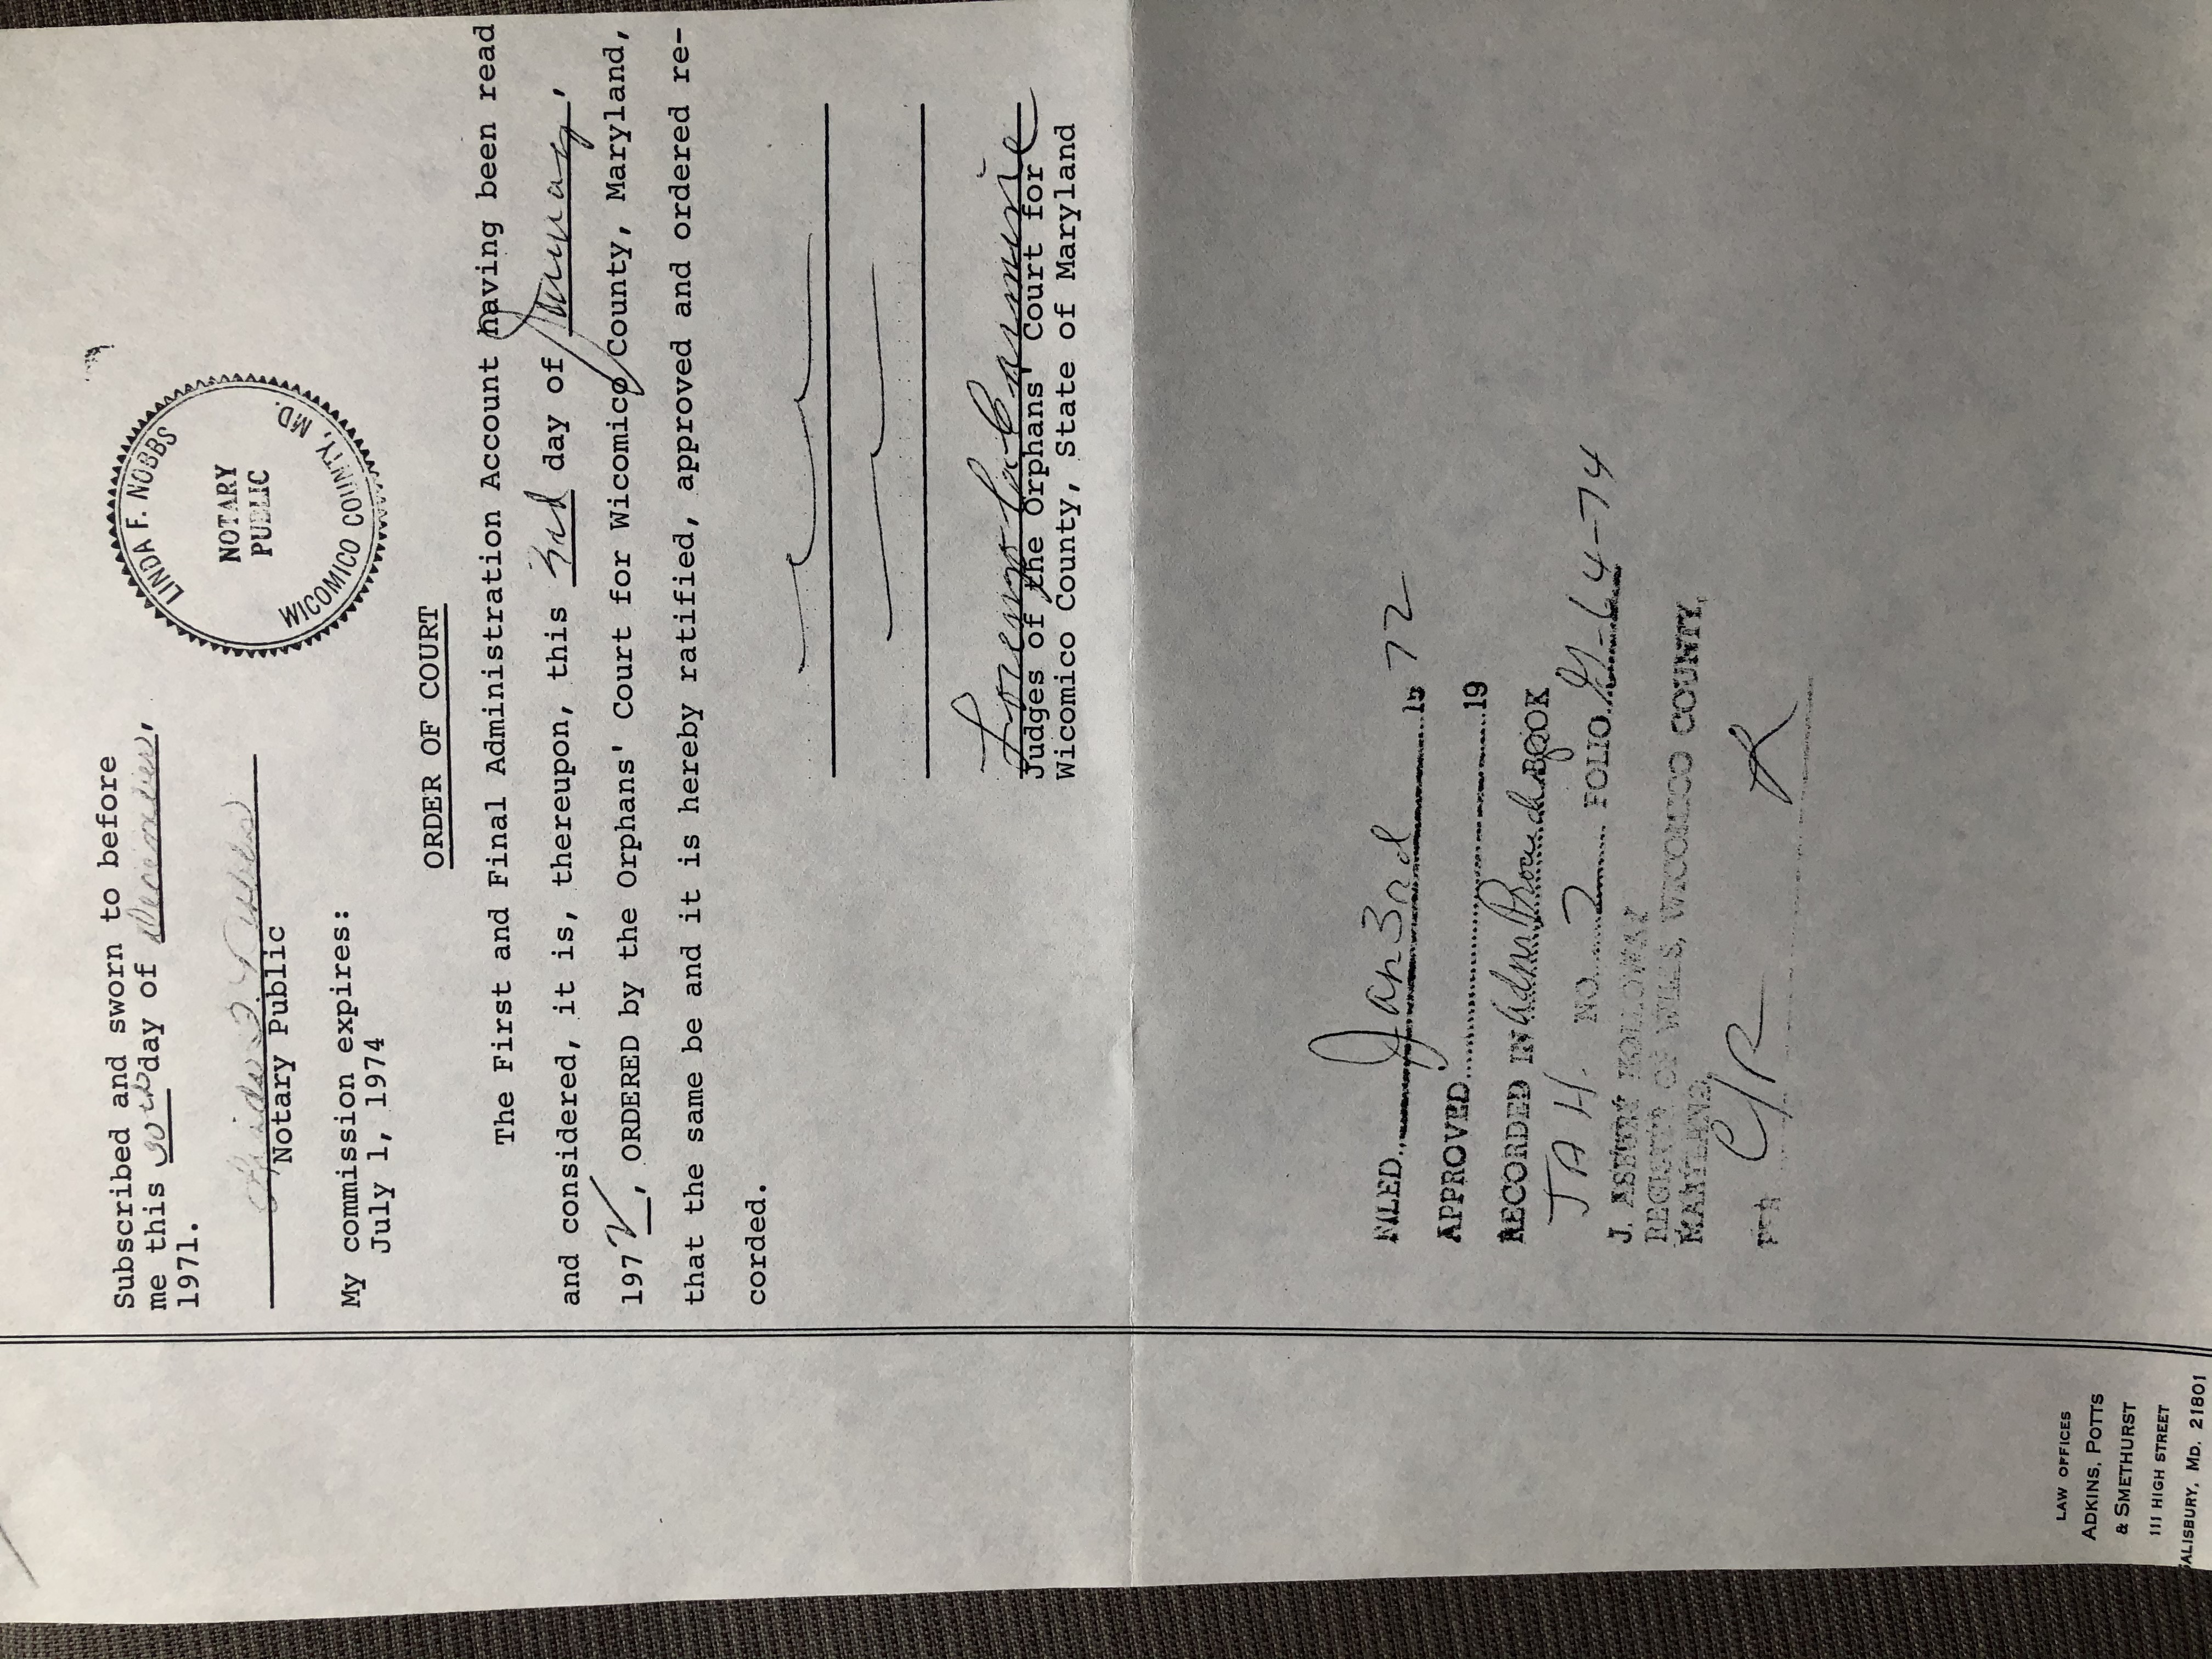 Subscribed and sworn to before
me this 30th day of December,
1971.
LINDA F. NOBBS
NOTARY
PUBLIC
WICOMICO COUNTY, MD.
Linda F. Nobbs
Notary Public
My commission expires:
July 1, 1974
ORDER OF COURT
The First and Final Administration Account having been read
and considered, it is, thereupon, this 3rd day of January,
1972, ORDERED by the Orphans' Court for Wicomico County, Maryland,
that the same be and it is hereby ratified, approved and ordered re-
corded.
Judges of the Orphans' Court for
Wicomico County, State of Maryland
FILED Jan 3rd 19 72
APPROVED 19
RECORDED IN Adm Proceedings BOOK
JAH. NO. 2 FOLIO -64-74
J. ASBURY HOLLOWAY
REGISTER OF WILLS, WICOMICO COUNTY,
MARYLAND.
PER
LAW OFFICES
ADKINS, POTTS
& SMETHURST
111 HIGH STREET
SALISBURY, MD. 21801